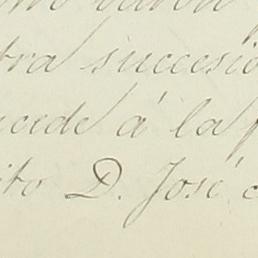 tra succesió
cede á la
ito D. José